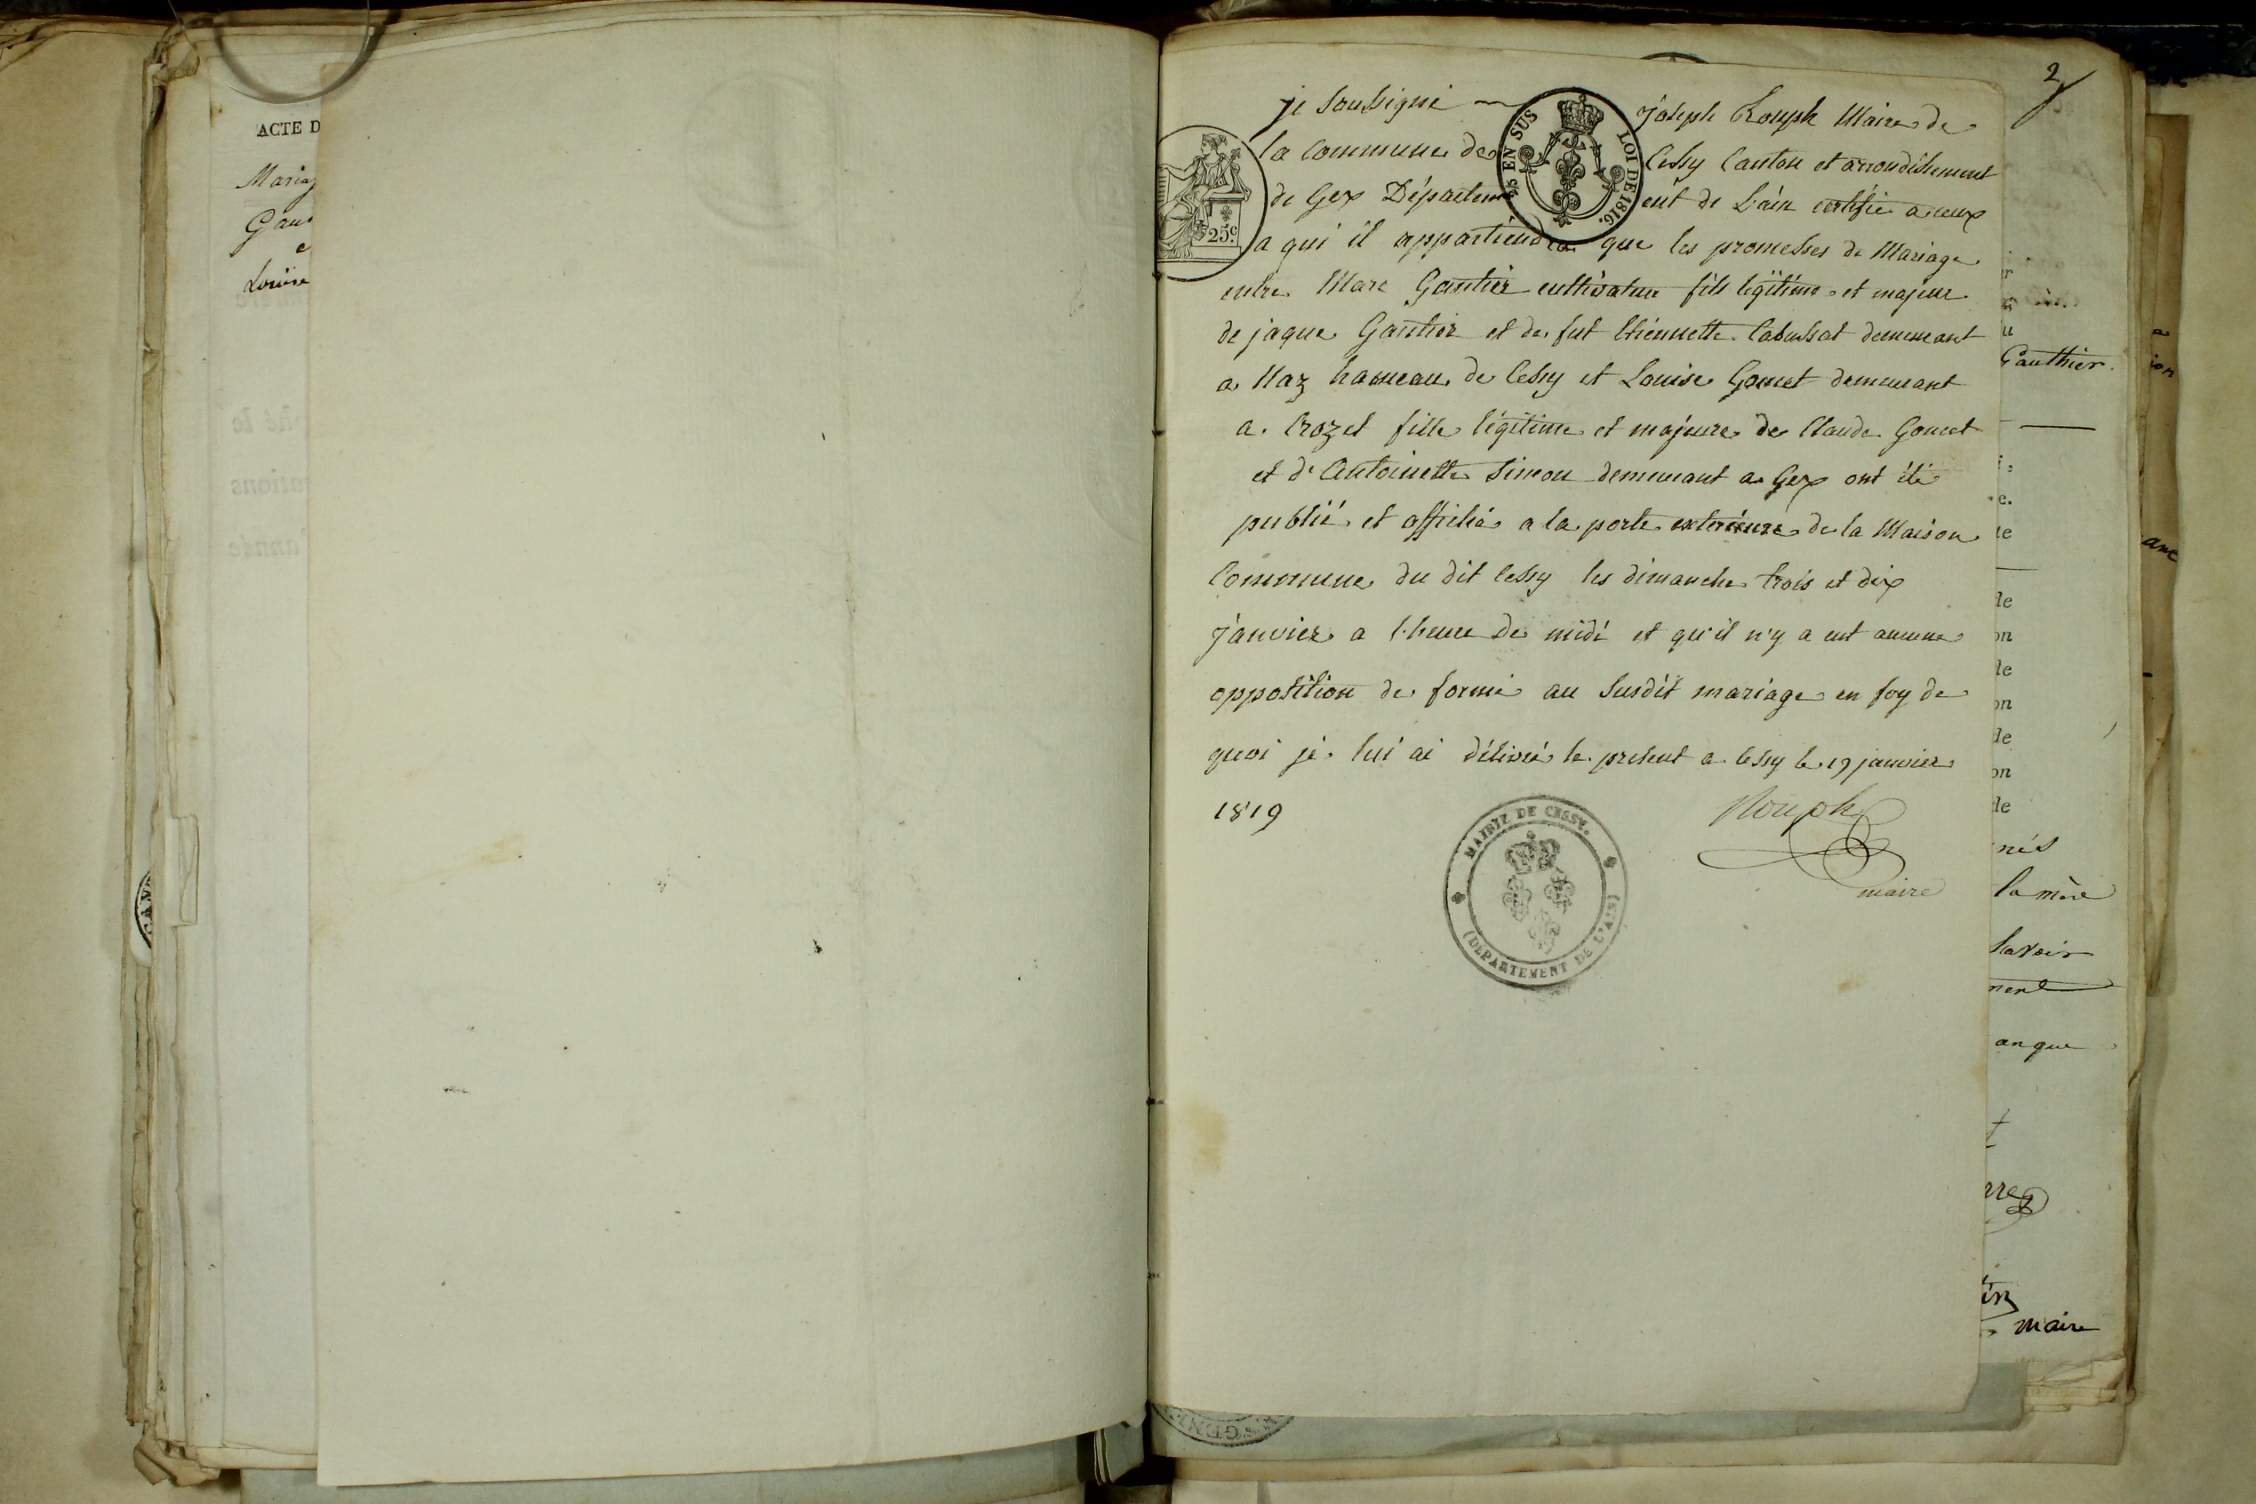 ACTE D
Maria
Gau
e
Louise
2
je soussigné joseph Rouph Maire de
la Commune de Cessy Canton et arrondissement
de Gex Département de L'ain certifie a ceux
a qui il appartiendra que les promesses de Mariage
entre Marc Gautier cultivateur fils légitime et majeur
de jaque Gautier et de fut Etiennette demeurant
a Naz hameau de Cessy et Louise Goncet demeurant
a Crozet fille légitime et majeure de Claude Goncet
et d'Antoinette Simon demeurant a Gex ont été
publié et affiché a la porte exterieure de la Maison
Commune du dit Cessy les dimanche trois et dix
janvier a l'heure de midi et qu'il n'y a eut aucune
opposition de formé au susdit mariage en foy de
quoi je lui ai délivré le present a Cessy le 19 janvier
1819
Rouph
maire
25 EN SUS
LOI DE 1816.
25c
MAIRIE DE CESSY.
(DEPARTEMENT DE L'AIN)
Gauthier.
nés
la mère
Savoir
ment
anque
maire